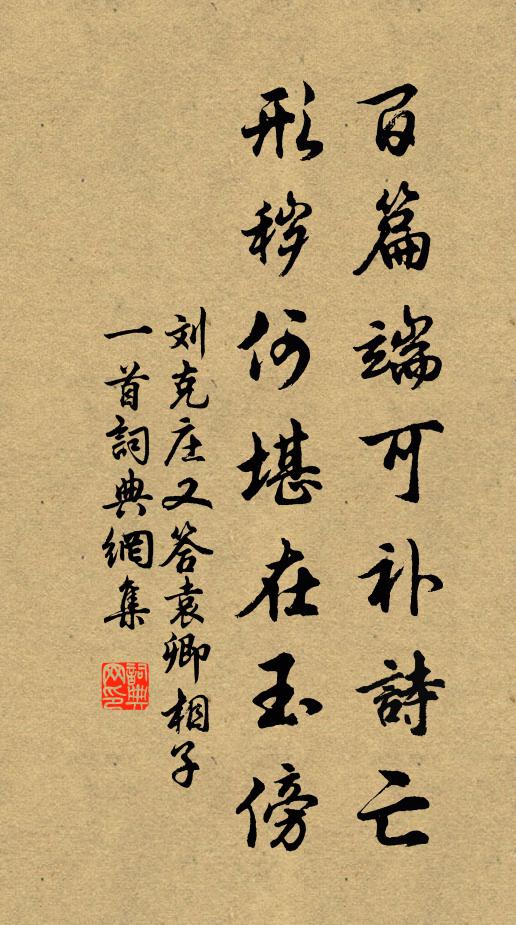 百篇端可补詩亡
形秽何堪在玉傍
刘克庄又答袁卿相子
一首詞典網集
詞典网印